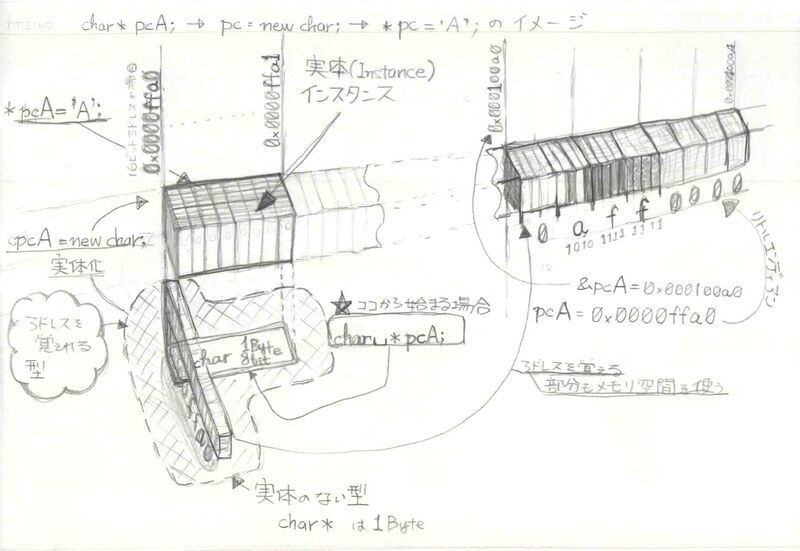 TITLE/NO.
char* pcA; → pc = new char; → *pc = 'A'; の イメージ
*pcA = 'A';
0x0000ffa0
0x0000ffa1
実体(Instance)
インスタンス
0x000100a0
0x000100a4
pcA = new char;
実体化
アドレスを
覚えれる
型
char 1Byte
8bit
★ ココから始まる場合
char␣*pcA;
0 a f f 0 0 0 0
1010 1111 1111
リトルエンディアン
&pcA = 0x000100a0
pcA = 0x0000ffa0
アドレスを覚える
部分もメモリ空間を使う
実体のない型
char* は 1Byte